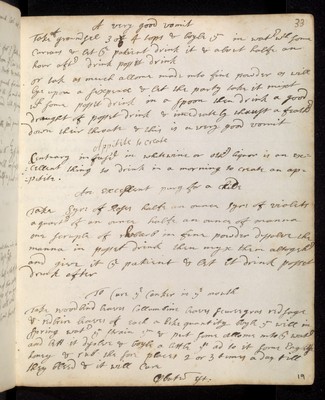 A very good vomit
33
Take groundsel 3 of 4 tops & boyle ym in watr wth some
Currans & let ye patient drink it & about halfe an
hour aftr drink posset drink
or take as much allome made into fine powder as will
lye upon a sixpence & let the party take it mixt
wth some posset drink in a spoon then drink a good
draught of posset drink & imediately thrust a feathr
down their throate & this is a very good vomit
Apetite to create
Centaury infused in whitewine or othr liquor is an ex=
cellent thing to drink in a morning to create an ape=
tite
An excellent purg for a child
Take Syrs of Roses halfe an ounce Syrs of violets
a quartr of an ounce halfe an ounce of manna
one scruple of rhubarb in fine powder disolve the
manna in posset drink then mix them altogethr
and give it ye patient & let it drink posset
drink after
To Cure ye Canker in ye mouth
Take woodbind leaves Collumbine leaves fivergrass red sage
& ribwort leaves of each a like quantity boyle ym well in
spring watr yn strain ym & put some allome into ye watr
and lett it disolve & boyle a little & ad to it some English
honey & rub the sore places 2 or 3 times a day till
they bleed & it will cure
19